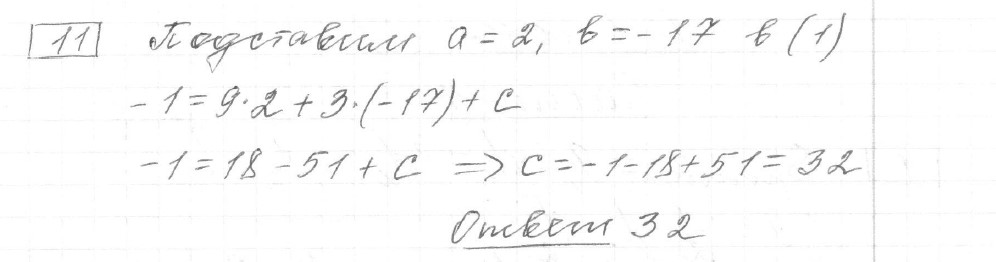 11 Подставим a = 2, b = -17 в (1)
-1 = 9·2 + 3·(-17) + c
-1 = 18 - 51 + c => c = -1 - 18 + 51 = 32
Ответ 32